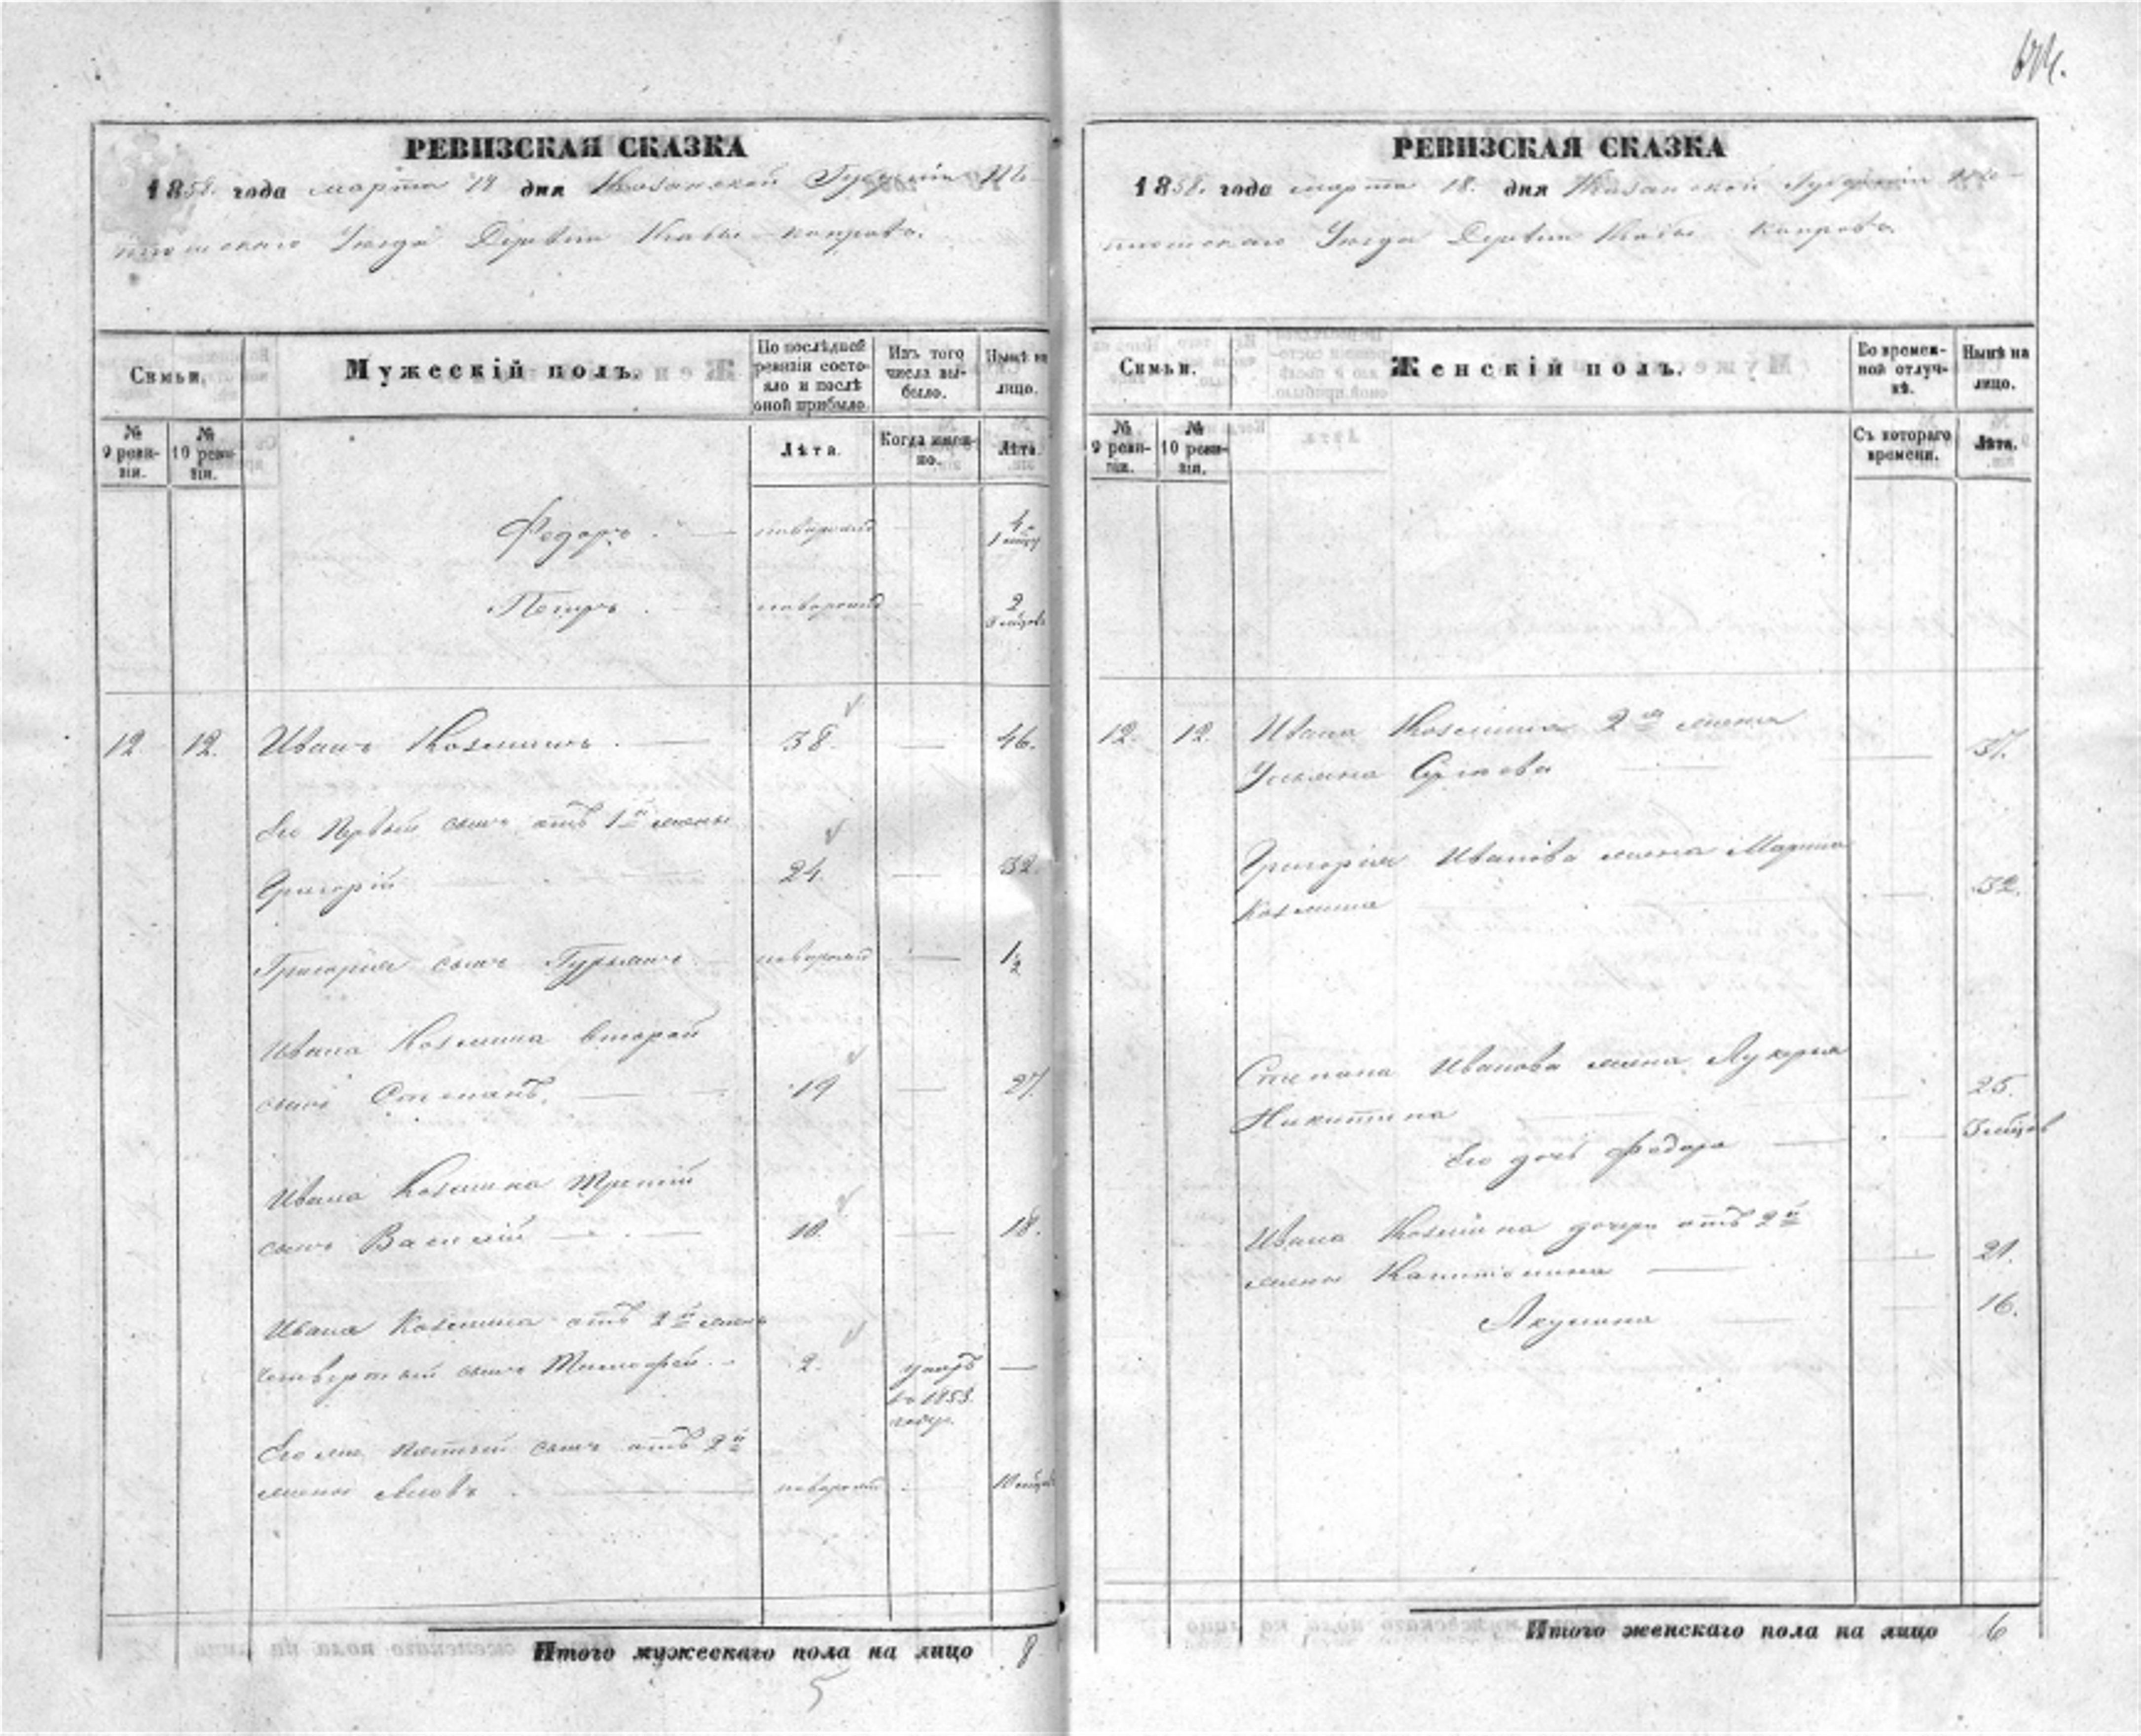 РЕВИЗСКАЯ СКАЗКА
1858. года марта 18 дня Казанской Губернiи
Уезда Деревни
Семьи.
Мужескiй полъ.
По послѣдней ревизiи состояло и послѣ оной прибыло
Изъ того числа выбыло.
Нынѣ на лицо.
№ 9 ревизiи.
№ 10 ревизiи.
Лѣта.
Когда именно.
Лѣта.
Федоръ новорожд 4
Петръ новорожд 2
12 12. Иванъ Козминъ 38. 46.
Его Первый сынъ отъ 1й жены
Григорiй 24 32.
Григорiя сынъ Гурьянъ новорожд 1½
Ивана Козмина второй
сынъ Степанъ. 19 27.
Ивана Козмина Третiй
сынъ Василiй 10. 18.
Ивана Козмина отъ 2й жены
четвертый сынъ Тимофей 2. умеръ
въ 1853.
году.
Его же пятый сынъ отъ 2й
жены новорожд 10 мцовъ
Итого мужескаго пола на лицо 8
5
РЕВИЗСКАЯ СКАЗКА
1858. года марта 18. дня Казанской Губернiи
Уезда Деревни
Семьи.
Женскiй полъ.
Во временной отлучкѣ.
Нынѣ на лицо.
№ 9 ревизiи.
№ 10 ревизiи.
Съ котораго времени.
Лѣта.
12. 12. Ивана Козмина 2я жена
Ульяна 37.
Григорiя Иванова жена Марина
Козмина 32.
Степана Иванова жена Лукерья
Никитина 25.
Его дочь Федора 3 мцовъ
Ивана Козмина дочери отъ 2й
жены Капитолина 21.
Акулина 16.
Итого женскаго пола на лицо 6